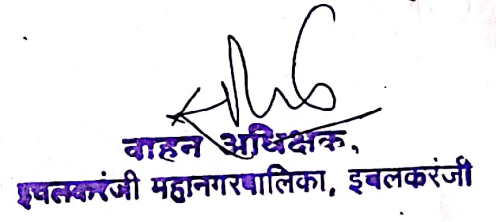 वाहन अधिक्षक,
इचलकरंजी महानगरपालिका, इचलकरंजी